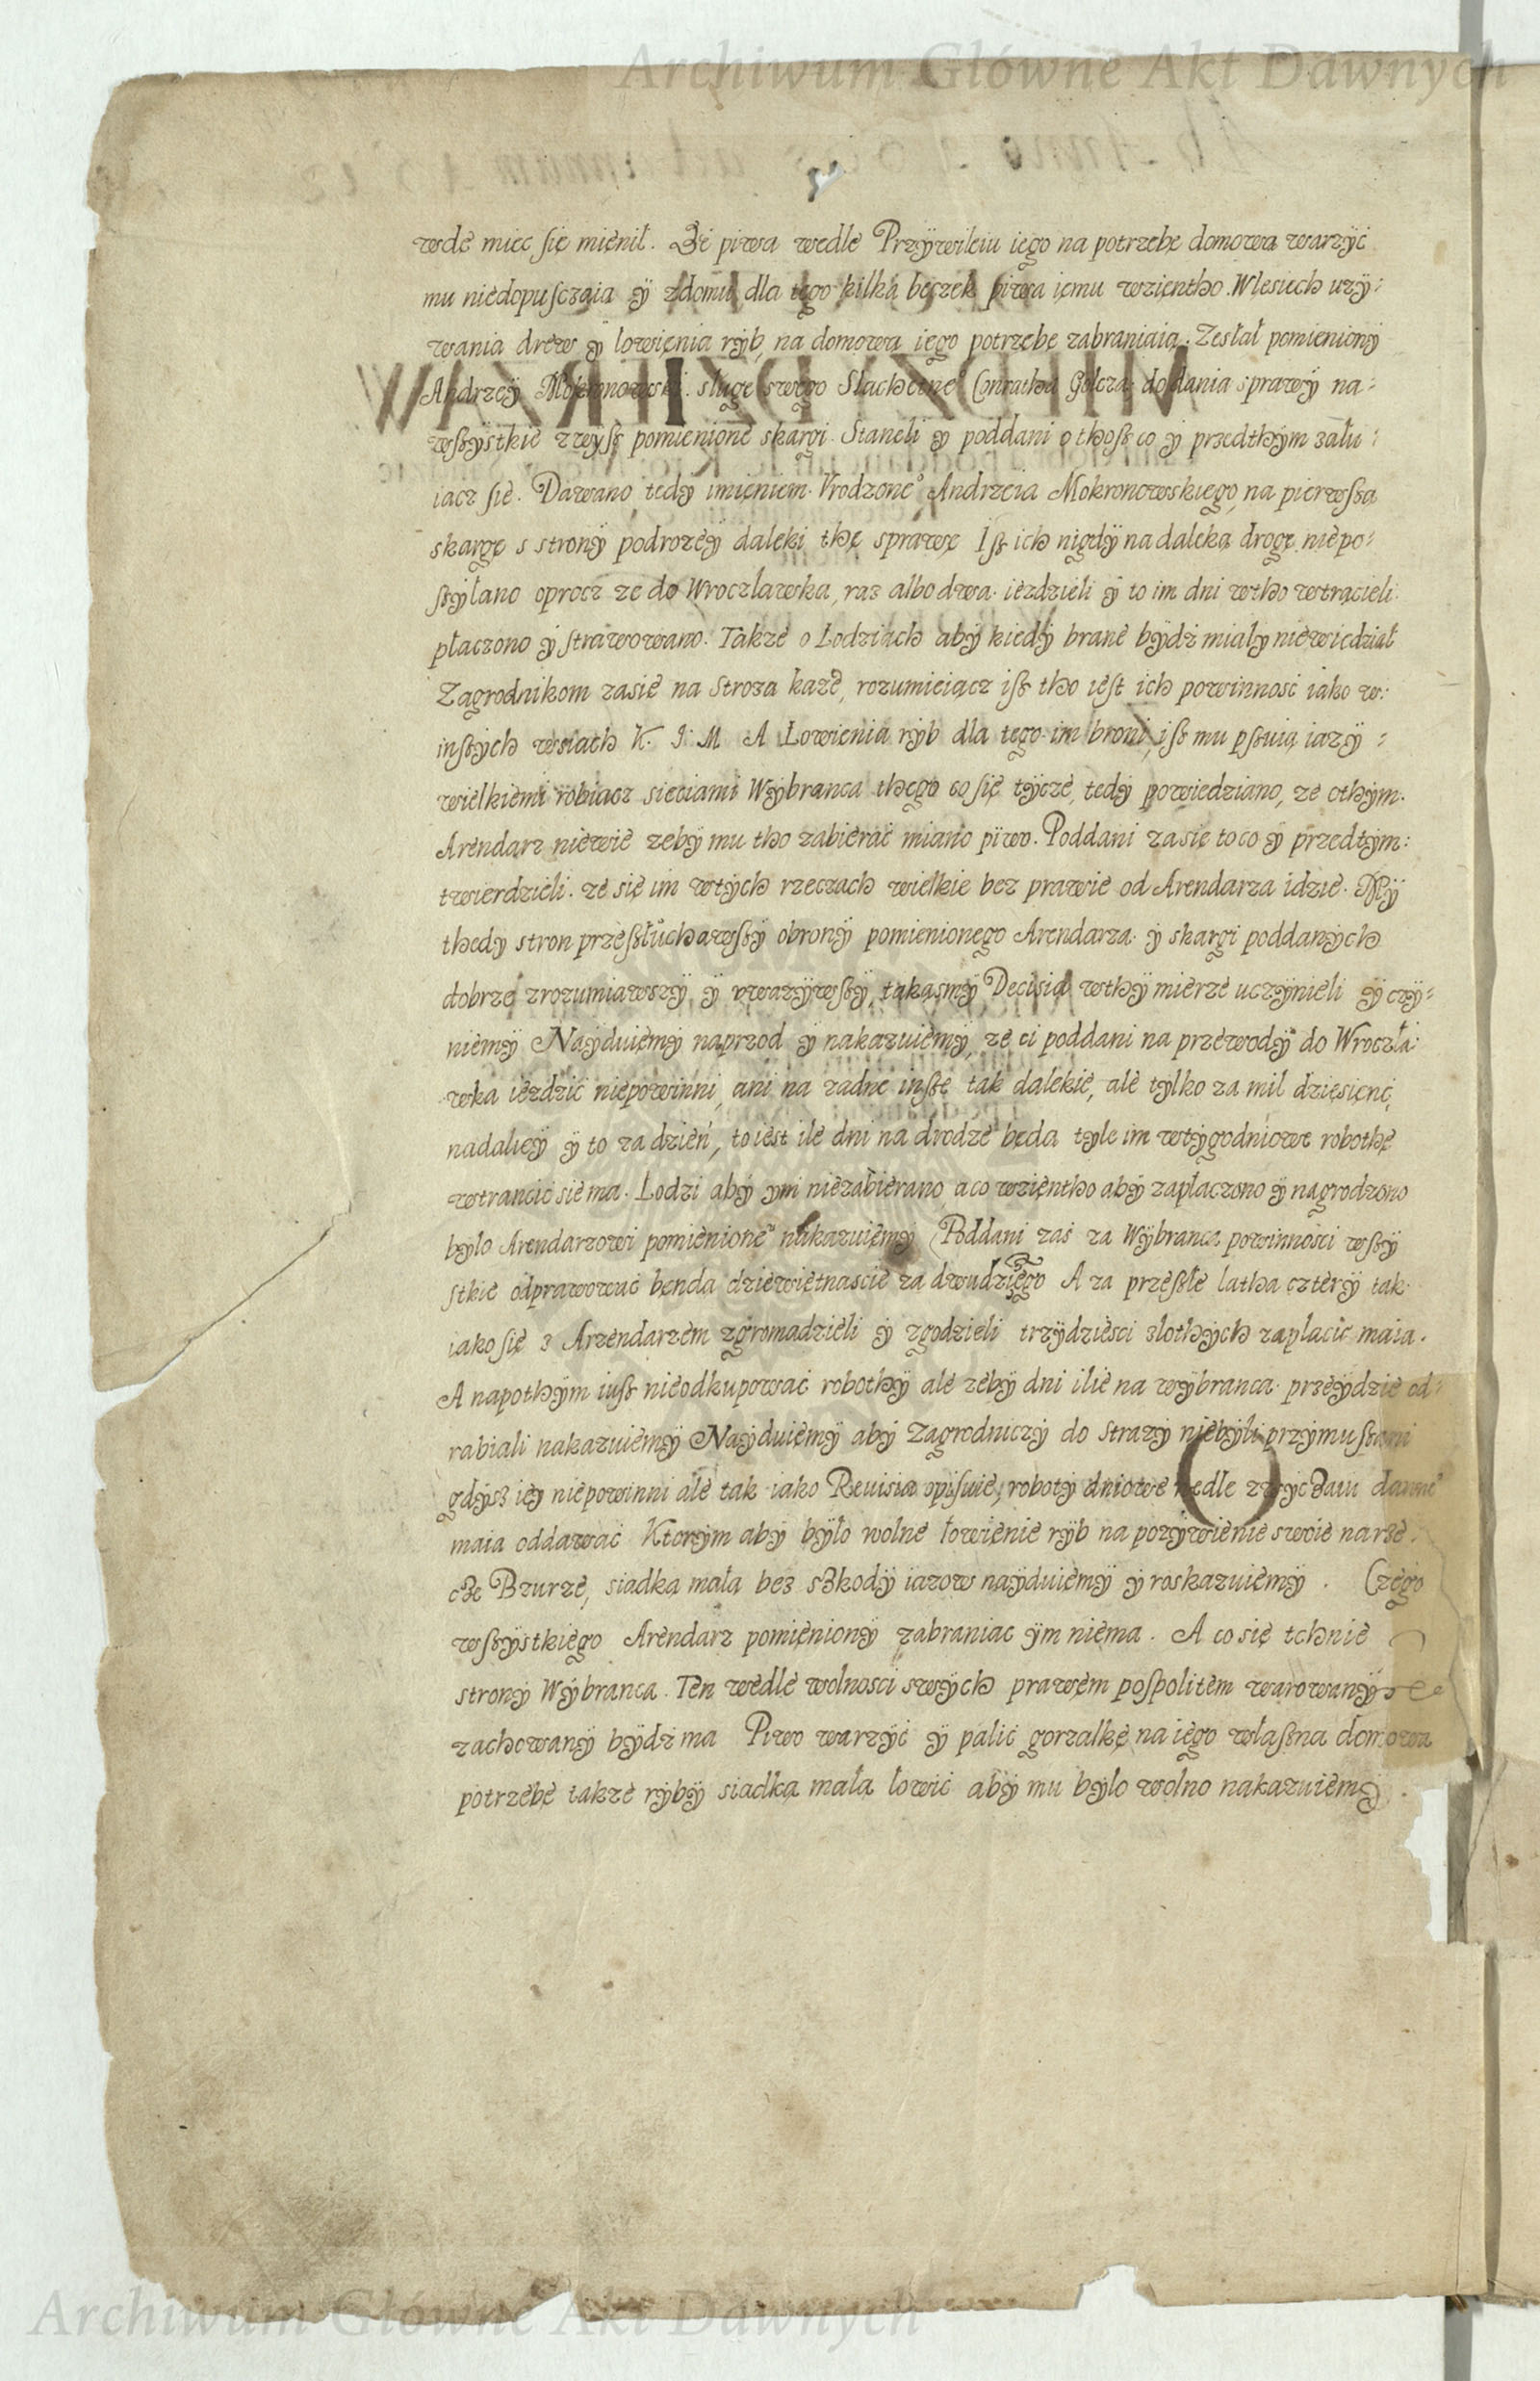 Archiwum Główne Akt Dawnych
wde miec się mienił. Ze piwa wedle Przÿwileiu iego na potrzebę domowa warzÿc
mu niedopusczaia ÿ zdomu dla tego kilka beczek piwa iemu wzientho. Wlesiech uzÿ:
wania drew ÿ lowienia rÿb na domowa iego potrzebe zabraniaia. Zesłał pomienionÿ
Andrzeÿ Mokronowski sługe swego Slachetne° Conratha Golcza do dania sprawÿ na:
wßÿstkie zwÿß pomienione skargi. Staneli ÿ poddani o thoß co ÿ przedthÿm zału:
iacz się. Dawano tedÿ imieniem Vrodzone° Andrzeia Mokronowskiego, na pierwßa
skargę s stronÿ podrozeÿ daleki thę sprawę Iß ich nigdÿ na daleką drogę niepo:
sÿłano oprocz ze do Wroczlawka, raz albo dwa iezdzieli ÿ to im dni wtho wtrącieli
płaczono ÿ strawowano. Takze o Łodziach abÿ kiedÿ brane bÿdz miałÿ niewiedział
Zagrodnikom zasię na Stroza każe, rozumieiącz iß tho iest ich powinnosc iako w:
inßÿch wsiach K. I. M A Łowienia rÿb dla tego im broni iß mu pßuią iazÿ:
wielkiemi robiacz sieciami Wÿbranca thego co się tÿcze, tedÿ powiedziano, ze othÿm.
Arendarz niewie zebÿ mu tho zabierać miano piwo. Poddani zasię to co ÿ przedtÿm:
twierdzieli. ze się im wtÿch rzeczach wielkie bez prawie od Arendarza idzie. Mÿ
thedÿ stron przeßłuchawßÿ obronÿ pomienionego Arendarza ÿ skargi poddanÿch
dobrze zrozumiawszÿ ÿ vwazÿwßÿ, takąsmÿ Decisią wthÿ mierze uczÿnieli ÿ czÿ:
niemÿ Naÿduiemÿ naprzod ÿ nakazuiemÿ, ze ci poddani na przewodÿ do Wroczła:
wka iezdzić niepowinni, ani na zadne inße tak dalekie, ale tÿlko za mil dziesienć,
nadalieÿ ÿ to za dzień, to iest ile dni na drodze będa tÿle im wtÿgodniowe robothę
wtrancic sie ma. Lodzi abÿ ÿm niezabierano a co wzientho abÿ zapłaczono ÿ nagrodzono
bÿło Arendarzowi pomienione° nakazuiemÿ Poddani zaś za Wÿbranca powinnosci wßÿ
stkie odprawować benda dziewiętnascie za dwudziego A za przeßłe latha czterÿ tak
iako się z Arzendarzem zgromadzieli ÿ zgodzieli trzÿdziesci złothÿch zapłacic maia.
A napothÿm iuß nieodkupować robothÿ ale zebÿ dni ilie na wÿbranca przeÿdzie od:
rabiali nakazuiemÿ Naÿduiemÿ abÿ Zagrodniczÿ do strazÿ niebÿli przÿmußani
gdÿsz ieÿ niepowinni ale tak iako Reuisia opisuie, robotÿ dniowe wedle zwÿczaiu dawne°
maia oddawać Ktorÿm abÿ bÿło wolne łowienie rÿb na pozÿwienie swoie na rze:
cze Bzurze, siadką małą bez szkodÿ iazow naÿduiemÿ ÿ roskazuiemÿ. Czego
wßÿstkiego Arendarz pomienionÿ zabraniac ÿm niema. A co się tchnie
stronÿ Wÿbranca. Ten wedle wolnosci swÿch prawem pospolitem warowanÿ
zachowanÿ bÿdz ma Piwo warzÿć ÿ palić gorzalkę na iego własna domowa
potrzebę takze rÿbÿ siadką małą łowić abÿ mu bÿło wolno nakazuiemÿ.
Archiwum Główne Akt Dawnych